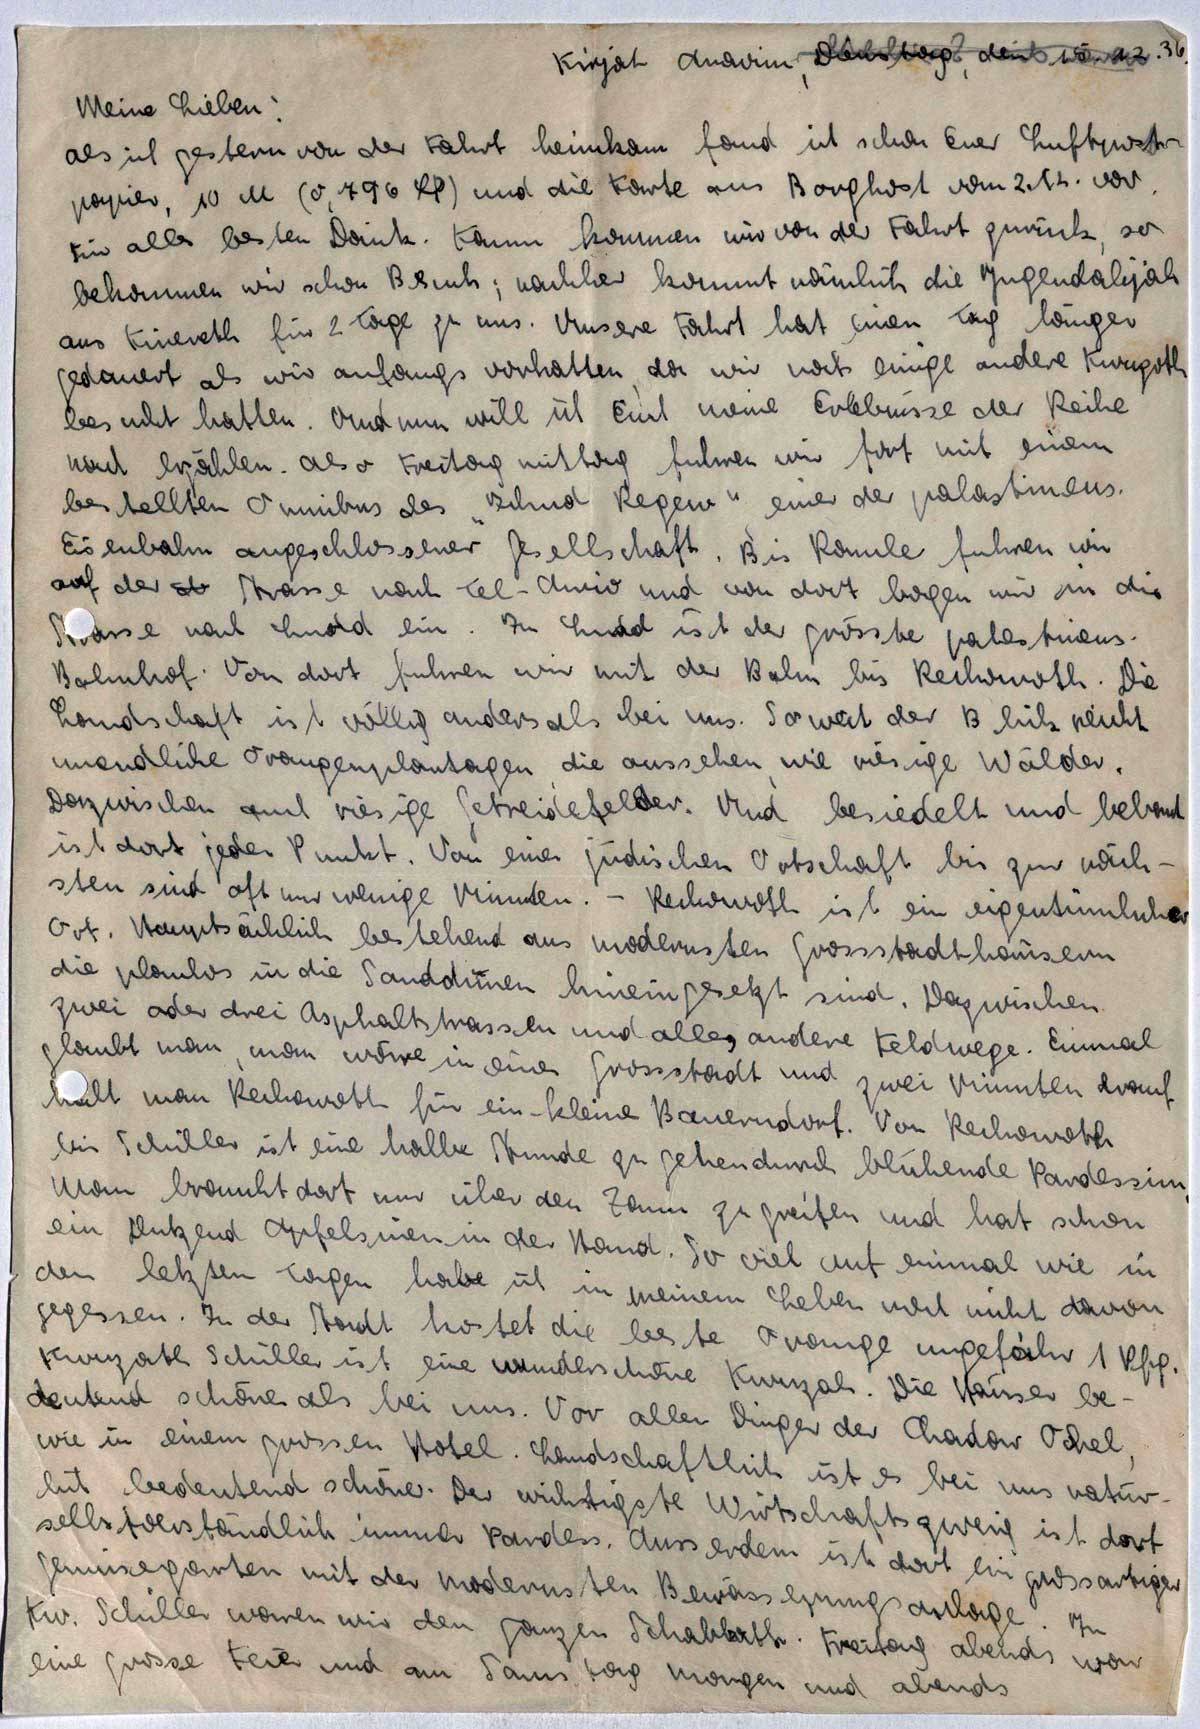 Kirjat Anavim, Dienstag, den 15.12.36.
Meine Lieben!
als ich gestern von der Fahrt heimkam fand ich schon Euer Luftpost-
papier, 10 M (0,796 LP) und die Karte aus Borghost vom 2.12. vor.
Für alles besten Dank. Kaum kommen wir von der Fahrt zurück, so
bekommen wir schon Besuch; nachher kommt nämlich die Jugendalijah
aus Kinereth für 2 Tage zu uns. Unsere Fahrt hat einen Tag länger
gedauert als wir anfangs vorhatten, da wir noch einige andere Kwuzoth
besucht hatten. Und nun will ich Euch meine Erlebnisse der Reihe
nach erzählen. Also Freitag mittag fuhren wir fort mit einem
bestellten Omnibus des "Ichud Regew" einer der palästinens.
Eisenbahn angeschlossener Gesellschaft. Bis Ramle fuhren wir
auf der Strasse nach Tel-Awiw und von dort bogen wir in die
Strasse nach Ludd ein. In Ludd ist der grösste palestinens.
Bahnhof. Von dort fuhren wir mit der Bahn bis Rechowoth. Die
Landschaft ist völlig anders als bei uns. Soweit der Blick reicht
unendliche Orangenplantagen, die aussehen, wie riesige Wälder.
Dazwischen auch riesige Getreidefelder. Und besiedelt und bebaut
ist dort jeder Punkt. Von einer jüdischen Ortschaft bis zur näch-
sten sind oft nur wenige Minuten. - Rechowoth ist ein eigentümlicher
Ort. Hauptsächlich bestehend aus modernsten Grossstadthäusern
die planlos in die Sanddünen hineingesetzt sind. Dazwischen
zwei oder drei Asphaltstrassen und alles andere Feldwege. Einmal
glaubt man, man wäre in einer Grossstadt und zwei Minuten drauf
hält man Rechowoth für ein kleine Bauerndorf. Von Rechowoth
bis Schiller ist eine halbe Stunde zu gehen durch blühende Pardessim.
Man braucht dort nur über den Zaun zu greifen und hat schon
ein Dutzend Apfelsinen in der Hand. So viel auf einmal wie in
den letzten Tagen habe ich in meinem Leben noch nicht davon
gegessen. In der Stadt kostet die beste Orange ungefähr 1 Pfg.
Kwuzath Schiller ist eine wunderschöne Kwuzah. Die Häuser be-
deutend schöner als bei uns. Vor allen Dingen der Chadar Ochel,
wie in einem grossen Hotel. Landschaftlich ist es bei uns natür-
lich bedeutend schöner. Der wichtigste Wirtschaftszweig ist dort
selbstverständlich immer Pardess. Ausserdem ist dort ein grossartiger
Gemüsegarten mit der modernsten Bewässerungsanlage. In
Kw. Schiller waren wir den ganzen Schabbath. Freitag abends war
eine grosse Feier und am Samstag morgen und abends